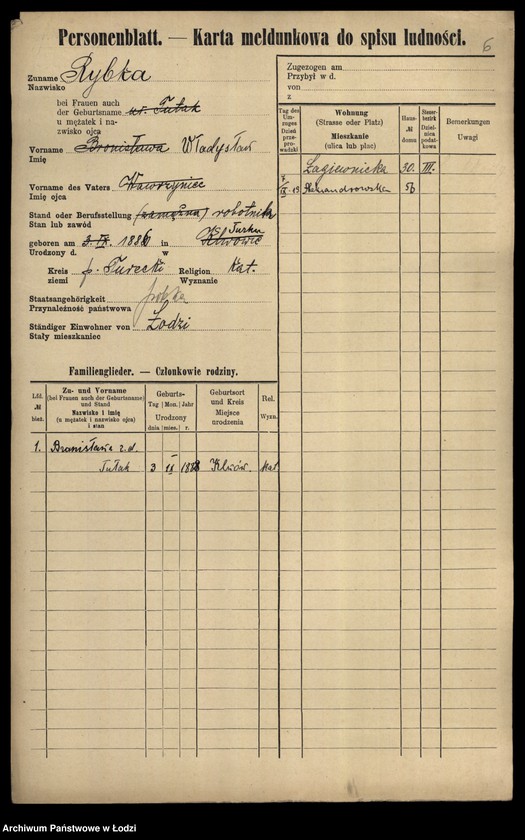 Personenblatt. — Karta meldunkowa do spisu ludności.
6
Zuname Rybka
Nazwisko
bei Frauen auch
der Geburtsname ur. Tułak
u mężatek i na-
zwisko ojca
Vorname Bronisława Władysław
Imię
Vorname des Vaters Wawrzyniec
Imię ojca
Stand oder Berufsstellung (zamężna) robotnik
Stan lub zawód
geboren am 3. IX. 1886 in Turku
Urodzony d. w
Kreis p. Turecki Religion kat.
ziemi Wyznanie
Staatsangehörigkeit polska
Przynależność państwowa
Ständiger Einwohner von Łodzi
Stały mieszkaniec
Familienglieder. — Członkowie rodziny.
Lfd. № bież.
Zu- und Vorname
(bei Frauen auch der Geburtsname)
und Stand
Nazwisko i imię
(u mężatek i nazwisko ojca)
i stan
Geburts-
Tag Mon. Jahr
Urodzony
dnia mies. r.
Geburtsort
und Kreis
Miejsce
urodzenia
Rel.
Wyzn.
1. Bronisława z d.
Tułak 3 IX 1888 Klwów. kat
Zugezogen am
Przybył w d.
von
z
Tag des
Um-
zuges
Dzień
prze-
prowadzki
Wohnung
(Strasse oder Platz)
Mieszkanie
(ulica lub plac)
Haus-
№
domu
Steuer-
bezirk
Dziel-
nica
podat-
kowa
Bemerkungen
Uwagi
Łagiewnicka 30. III.
7/IX 19 Aleksandrowska 56
Archiwum Państwowe w Łodzi